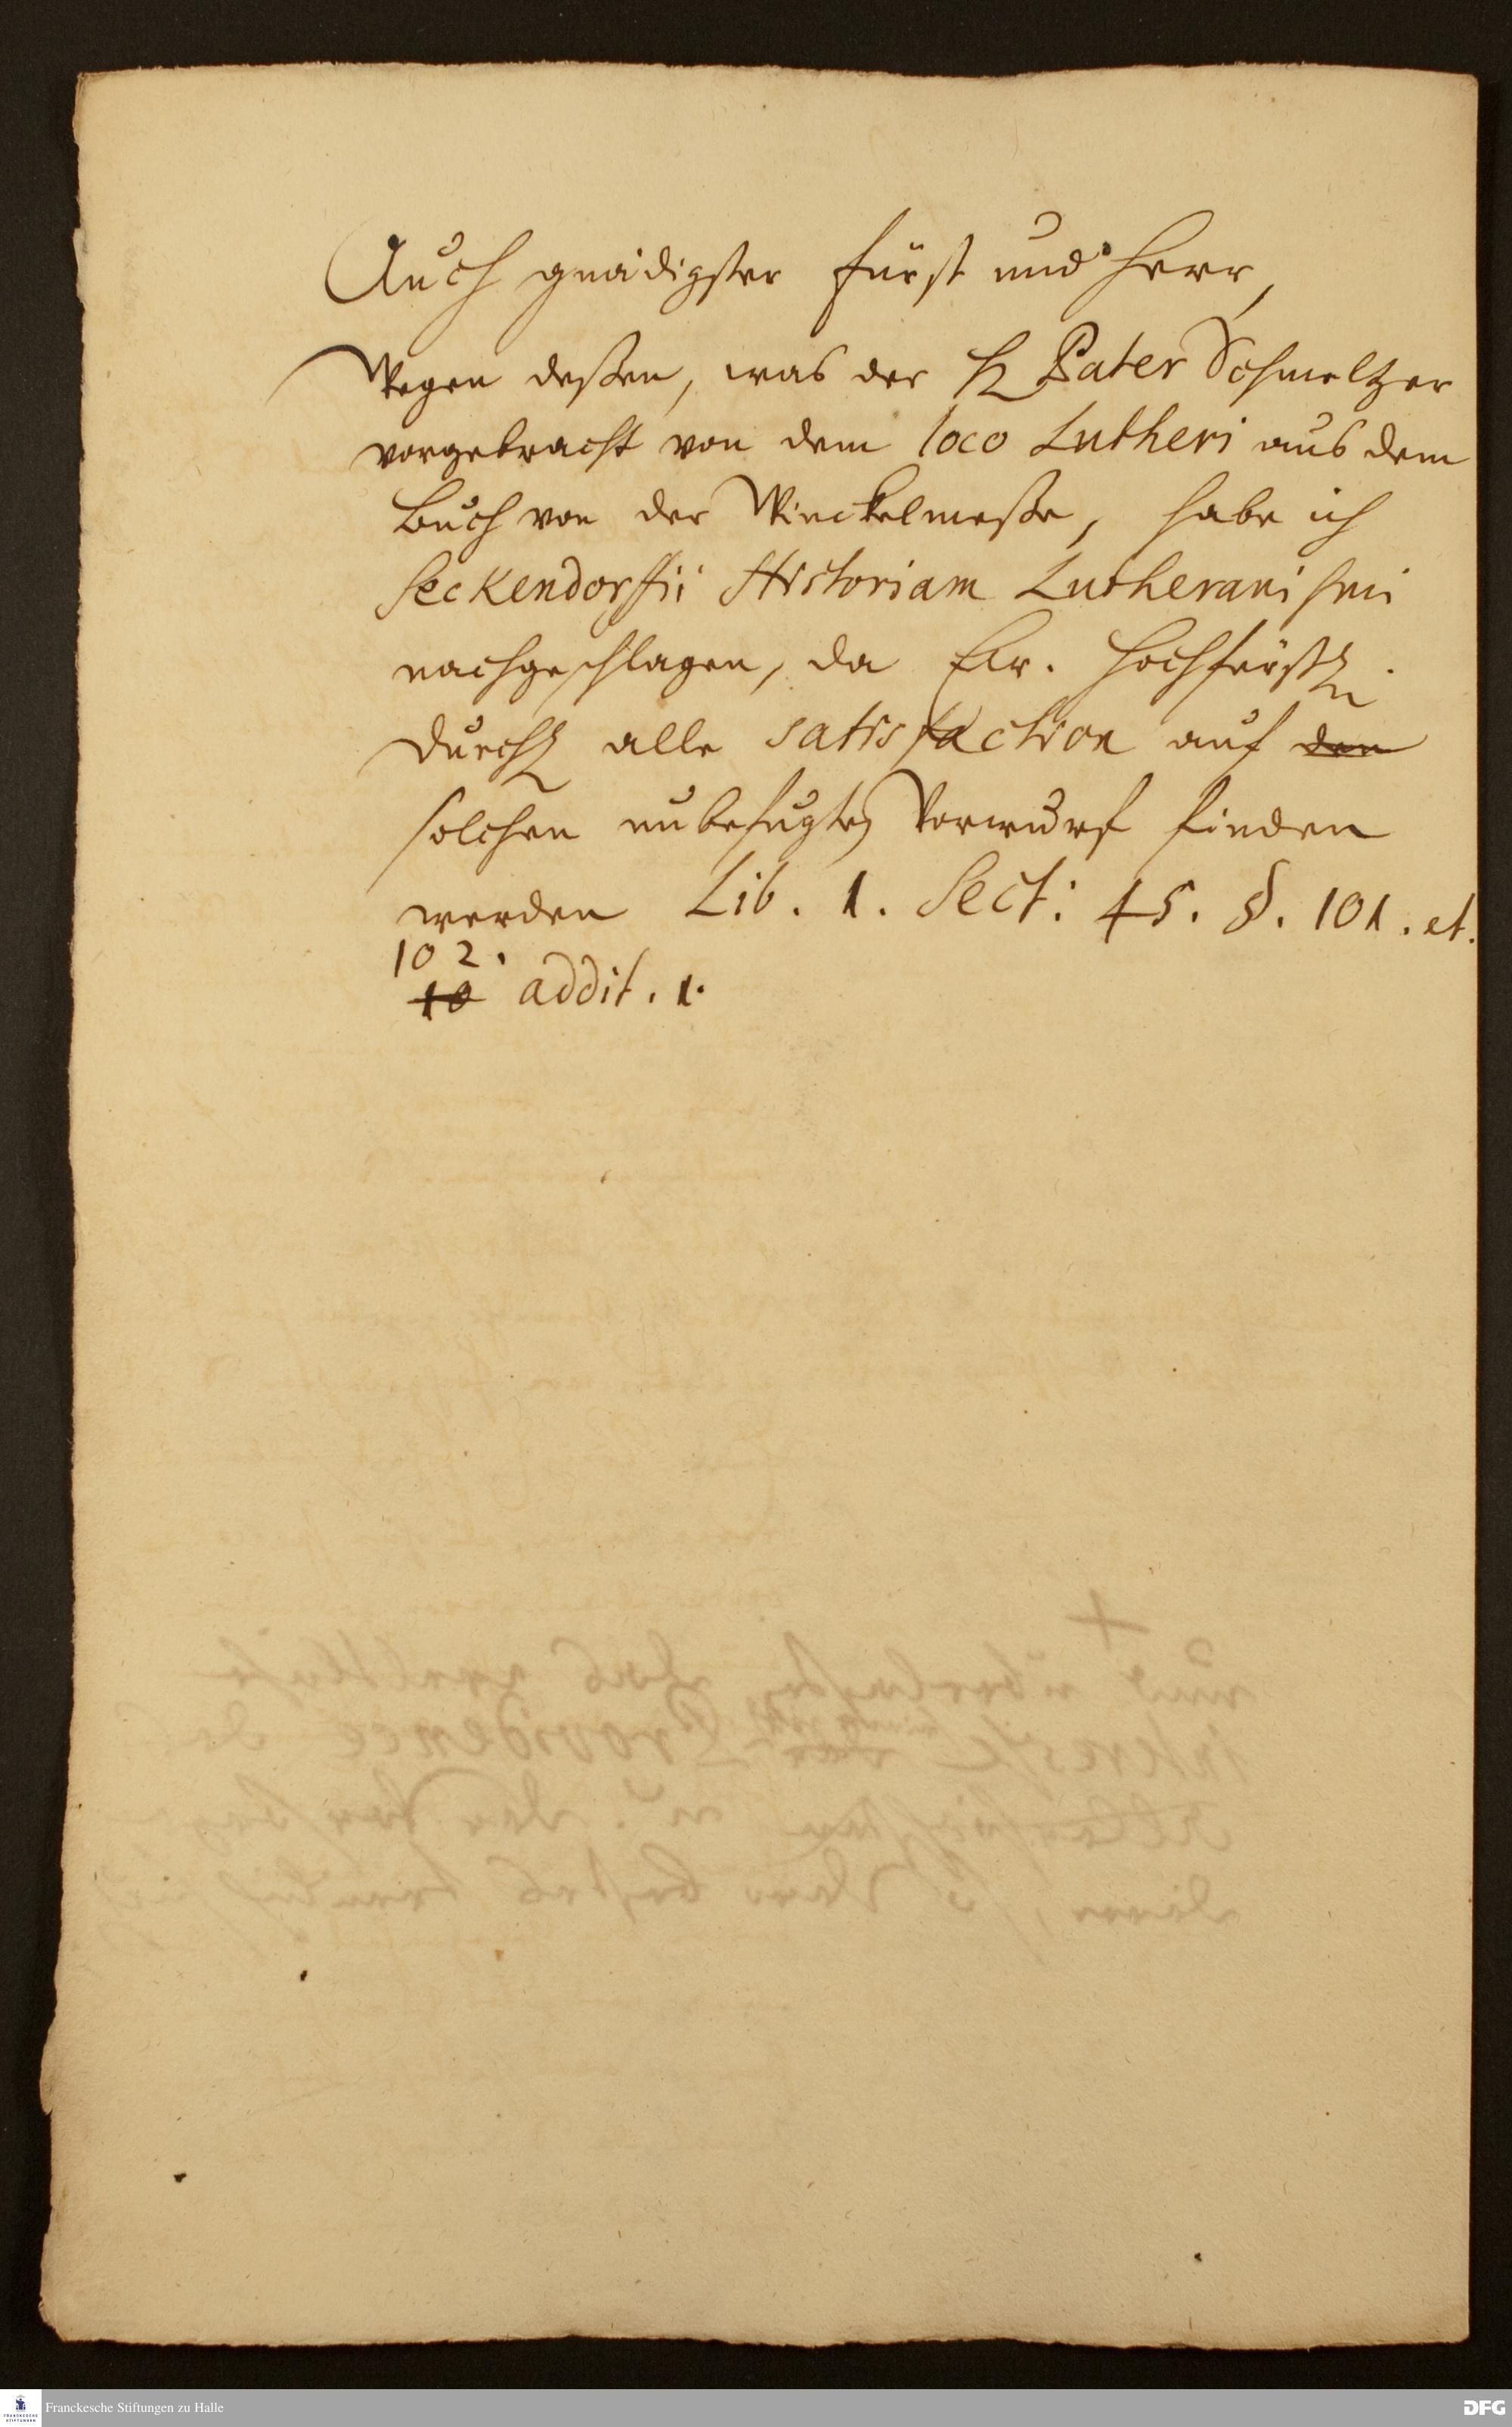 Auch gnädigster Fürst und Herr,
Wegen deßen, was der H Pater Schmeltzer
vorgebracht von dem loco Lutheri aus dem
Buch von der Winckelmeße, habe ich
Seckendorffii Historiam Lutheranismi
nachgeschlagen, da Ew. Hochfürstl.
Durchl alle satisfaction auf den
solchen unbefugten Vorwurf finden
werden Lib. 1. Sect: 45. §. 101. et.
102.
10 addit. 1.
Franckesche Stiftungen zu Halle
DFG